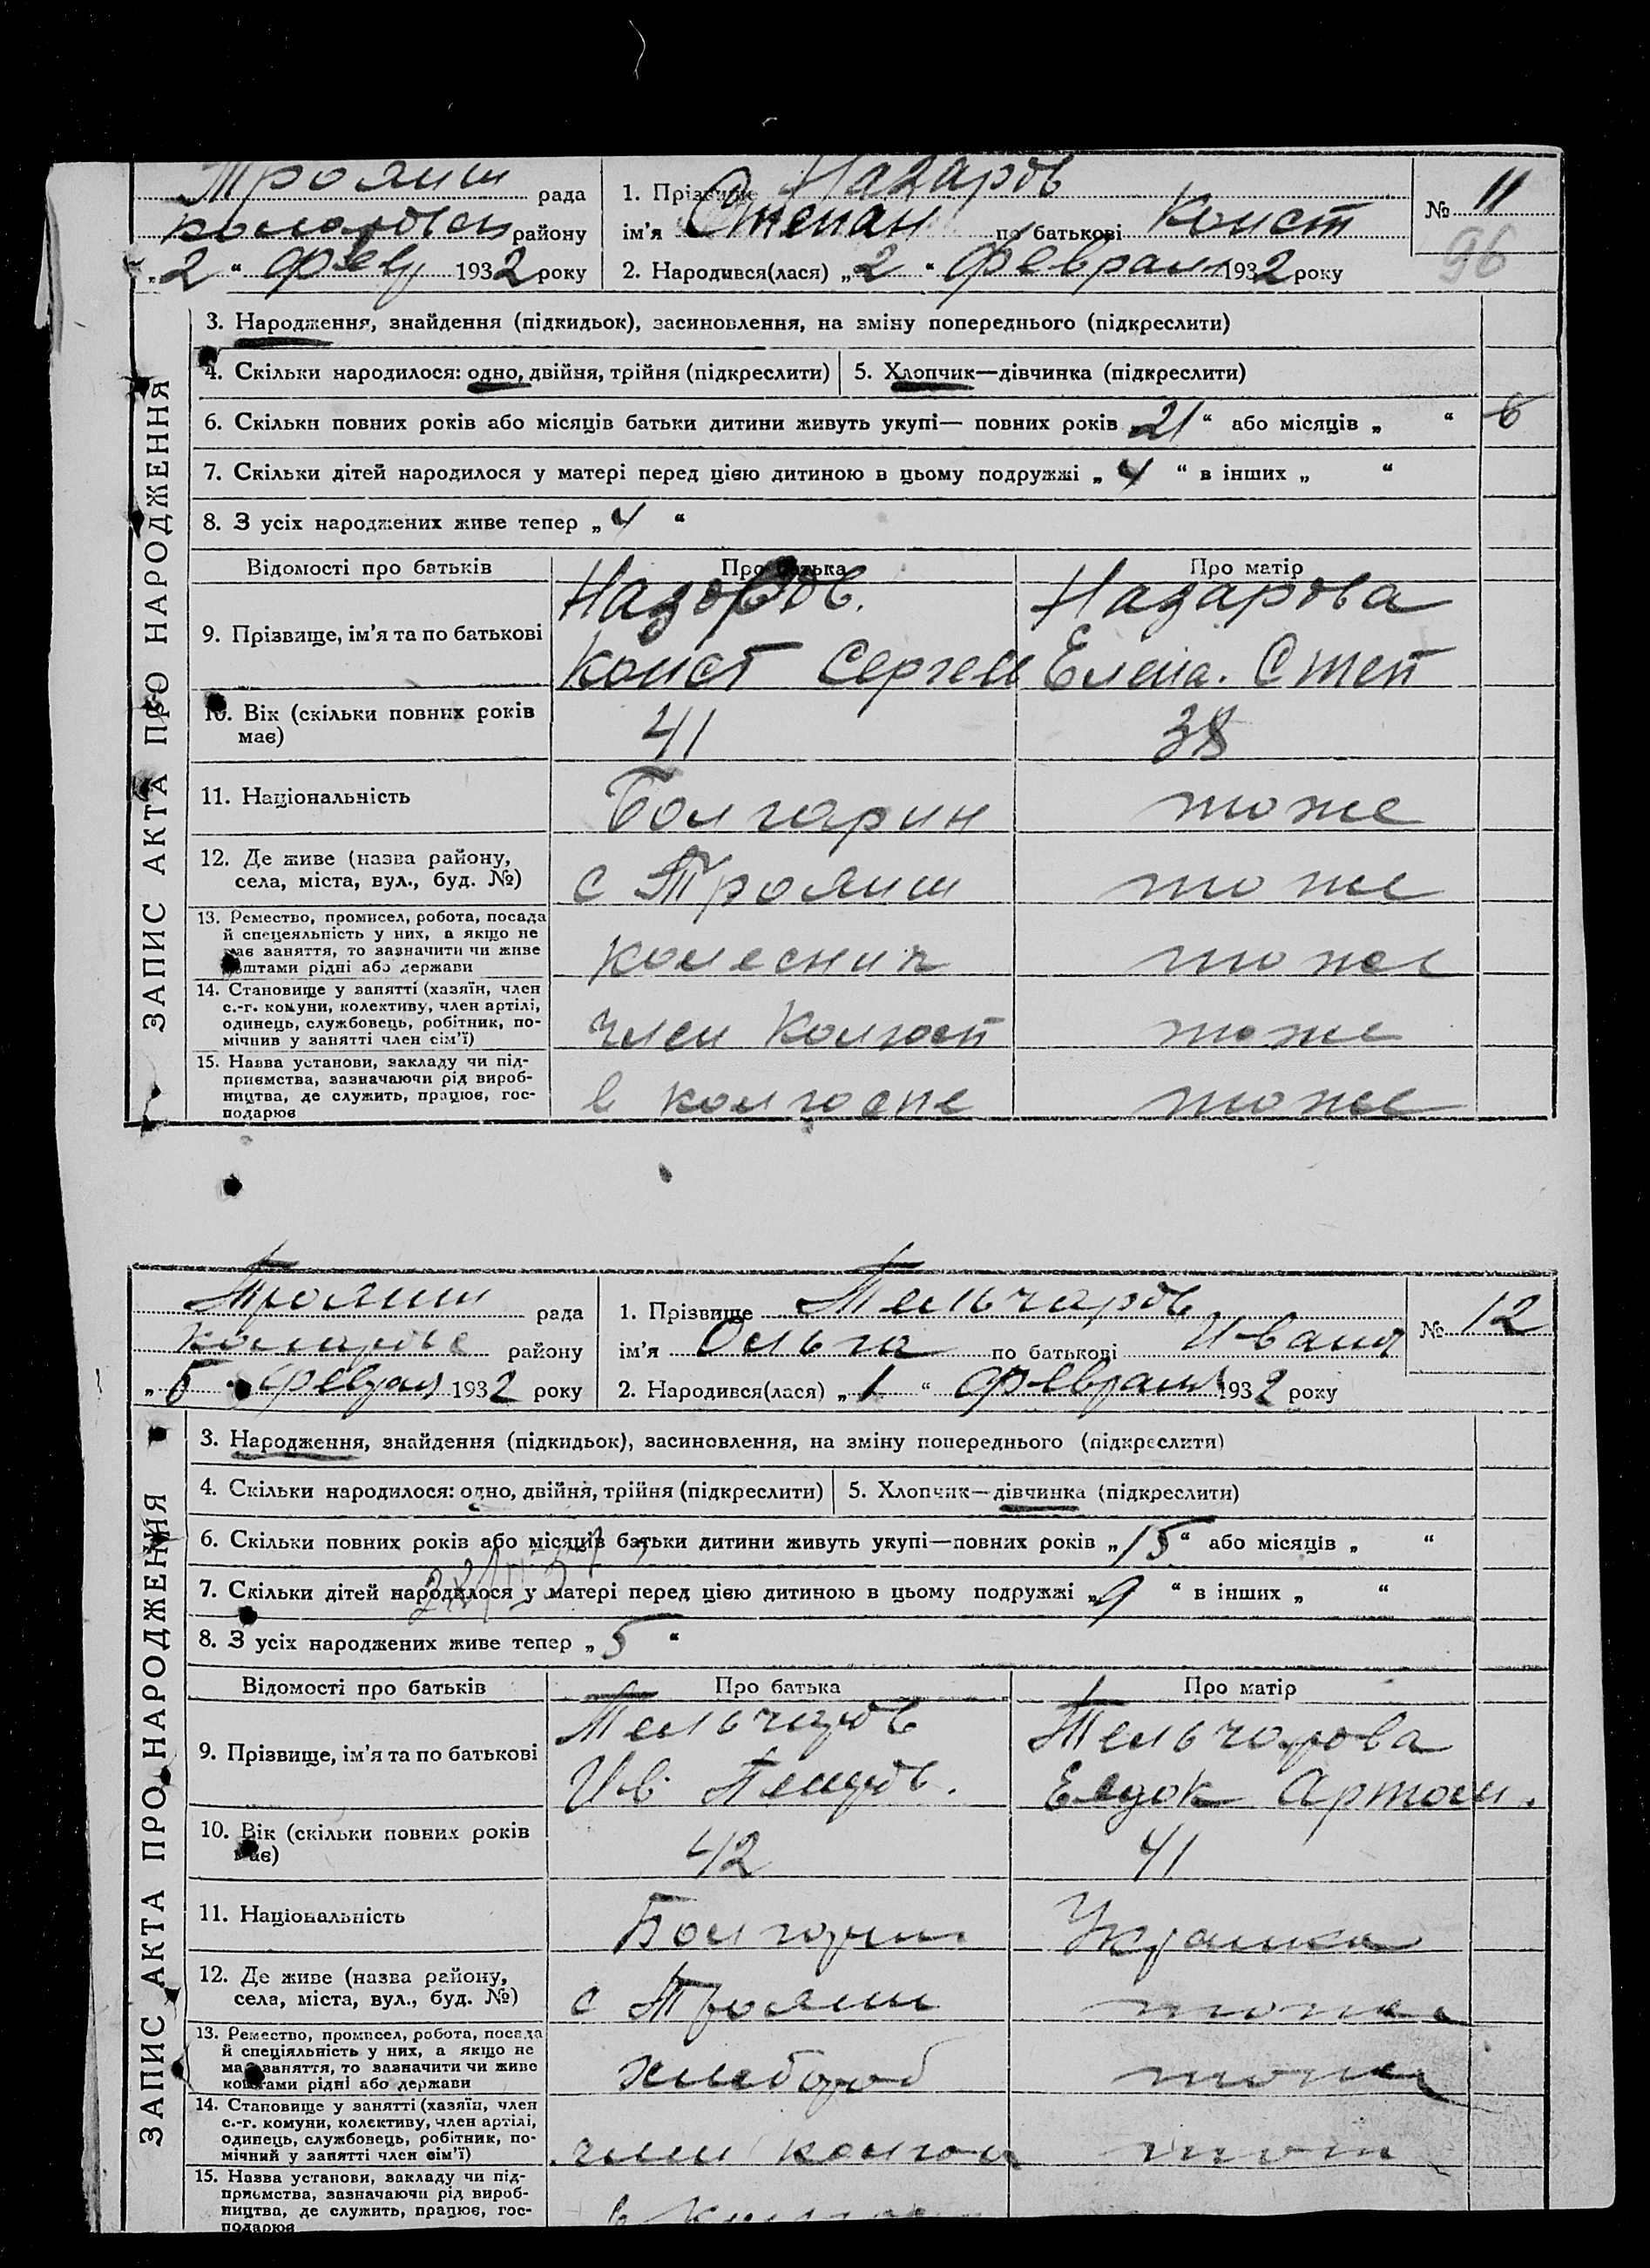 Трояни рада
району
„2“ 1932 року
1. Прізвище Назаров
ім'я Степан по батькові Конст
2. Народився(лася) „2“ Феврали 1932 року
№ 11
96
ЗАПИС АКТА ПРО НАРОДЖЕННЯ
3. Народження, знайдення (підкидьок), засиновлення, на зміну попереднього (підкреслити)
4. Скільки народилося: одно, двійня, трійня (підкреслити) 5. Хлопчик—дівчинка (підкреслити)
6. Скільки повних років або місяців батьки дитини живуть укупі— повних років „21“ або місяців „ “ 6
7. Скільки дітей народилося у матері перед цією дитиною в цьому подружжі „4“ в інших „ “
8. З усіх народжених живе тепер „4“
Відомості про батьків Про батька Про матір
9. Прізвище, ім'я та по батькові
Назаров. Назарова
Конст Сергеи Елена. Степ
10. Вік (скільки повних років має) 41 38
11. Національність Болгарин тоже
12. Де живе (назва району, села, міста, вул., буд. №) с Трояни тоже
13. Ремество, промисел, робота, посада й спецеяльність у них, а якщо не має заняття, то зазначити чи живе коштами рідні або держави колесник тоже
14. Становище у занятті (хазяїн, член с.-г. комуни, колективу, член артілі, одинець, службовець, робітник, помічнив у занятті член сім'ї) член Колгосп тоже
15. Назва установи, закладу чи підприємства, зазначаючи рід виробництва, де служить, працює, господарює в колгоспе тоже
Трояни рада
району
„5“ 1932 року
1. Прізвище Тельчаров
ім'я Ольга по батькові Иван
2. Народився(лася) „1“ Феврали 1932 року
№ 12
ЗАПИС АКТА ПРО НАРОДЖЕННЯ
3. Народження, знайдення (підкидьок), засиновлення, на зміну попереднього (підкреслити)
4. Скільки народилося: одно, двійня, трійня (підкреслити) 5. Хлопчик—дівчинка (підкреслити)
6. Скільки повних років або місяців батьки дитини живуть укупі—повних років „15“ або місяців „ “
7. Скільки дітей народилося у матері перед цією дитиною в цьому подружжі „9“ в інших „ “
8. З усіх народжених живе тепер „5“
Відомості про батьків Про батька Про матір
9. Прізвище, ім'я та по батькові
Тельчаров Тельчарова
Ив. Евдок Артом.
10. Вік (скільки повних років має) 42 41
11. Національність Болгарин Украинка
12. Де живе (назва району, села, міста, вул., буд. №) с Трояни тоже
13. Ремество, промисел, робота, посада й спеціяльність у них, а якщо не має заняття, то зазначити чи живе коштами рідні або держави хлебороб тоже
14. Становище у занятті (хазяїн, член с.-г. комуни, колективу, член артілі, одинець, службовець, робітник, помічний у занятті член сім'ї) член колгосп тож
15. Назва установи, закладу чи підприємства, зазначаючи рід виробництва, де служить, працює, господарює